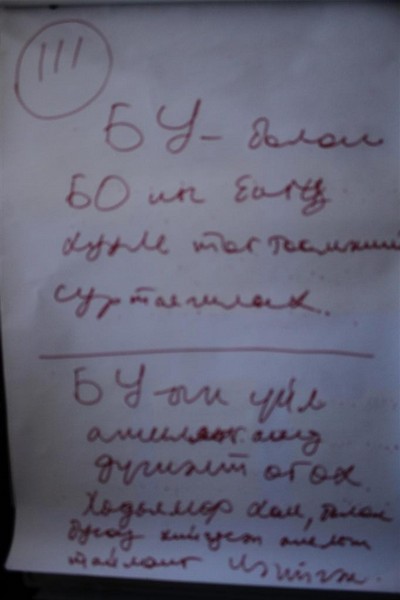 III
БУ- болон
БО ын бүтэц
хууль тогтоомжийг
сурталчлах.
БУ-ын үйл
ажиллагаанд
дүгнэлт өгөх.
Хөдөлмөр хам, болон
бусад хийгдсэн ажлын
тайланг